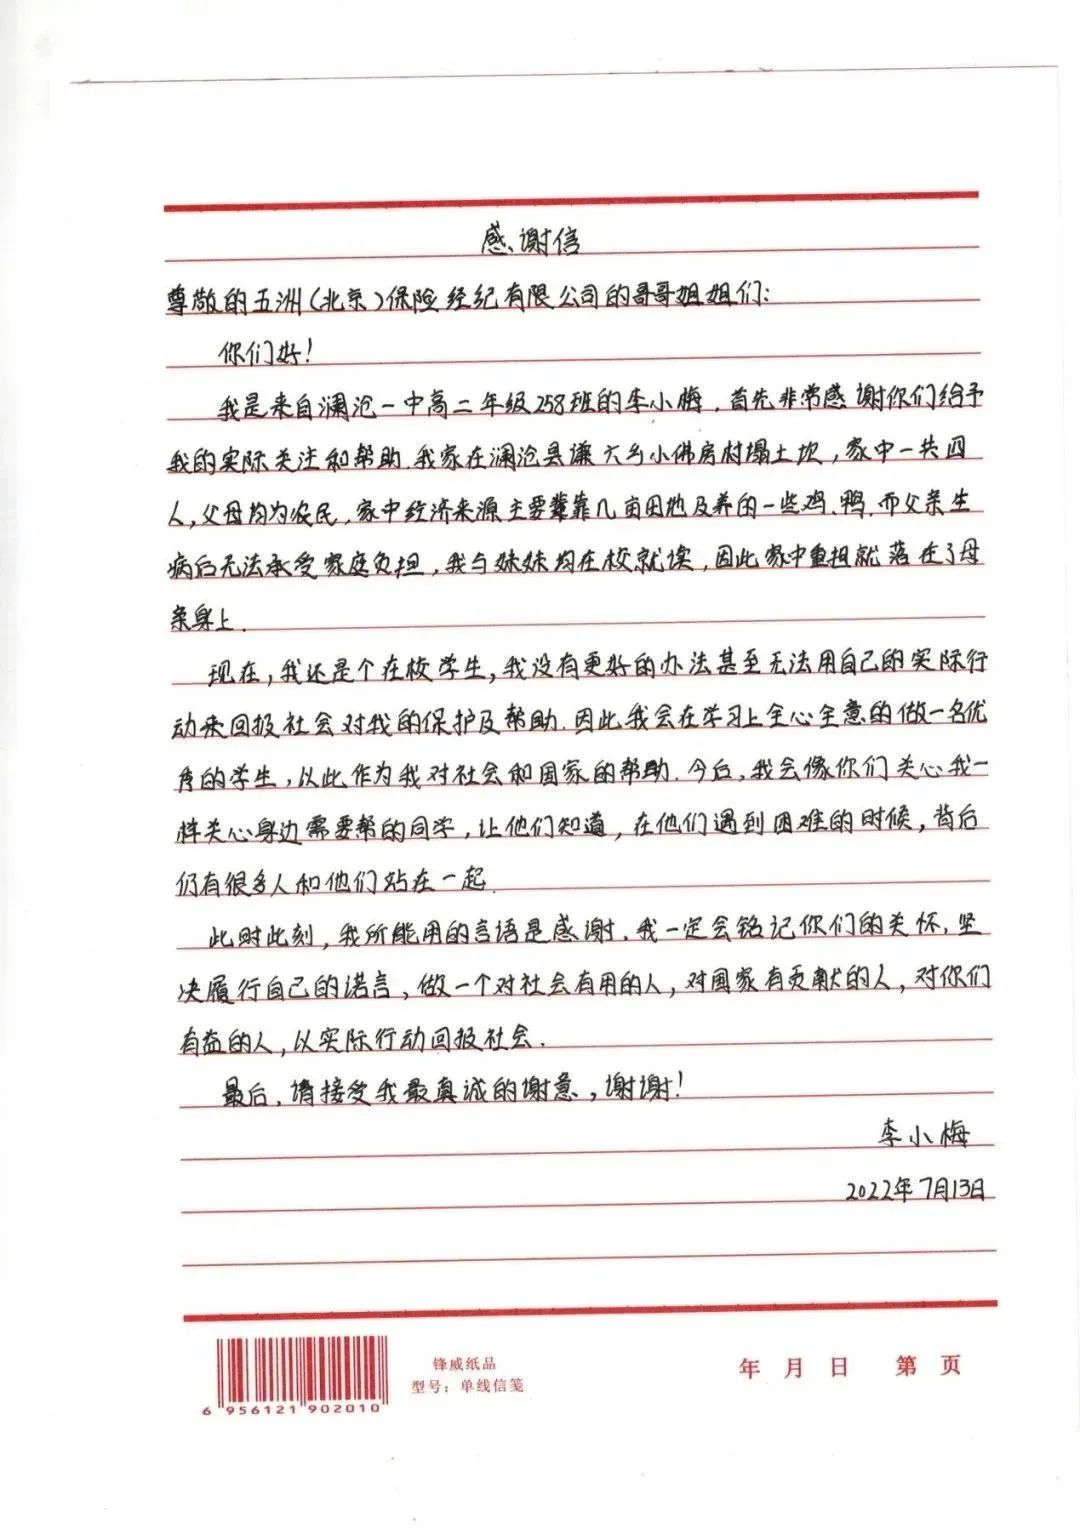 感谢信
尊敬的五洲(北京)保险经纪有限公司的哥哥姐姐们:
你们好!
我是来自澜沧一中高二年级258班的李小梅,首先非常感谢你们给予
我的实际关注和帮助.我家在澜沧县谦六乡小佛房村塌土坎,家中一共四
人,父母均为农民,家中经济来源主要靠几亩田地及养的一些鸡、鸭.而父亲生
病后无法承受家庭负担,我与妹妹均在校就读,因此家中重担就落在了母
亲身上.
现在,我还是个在校学生,我没有更好的办法甚至无法用自己的实际行
动来回报社会对我的保护及帮助.因此我会在学习上全心全意的做一名优
秀的学生,以此作为我对社会和国家的帮助.今后,我会像你们关心我一
样关心身边需要帮的同学,让他们知道,在他们遇到困难的时候,背后
仍有很多人和他们站在一起.
此时此刻,我所能用的言语是感谢.我一定会铭记你们的关怀,坚
决履行自己的诺言,做一个对社会有用的人,对国家有贡献的人,对你们
有益的人,以实际行动回报社会.
最后,请接受我最真诚的谢意,谢谢!
李小梅
2022年7月13日
锋威纸品
型号:单线信笺
年 月 日 第 页
6 956121 902010